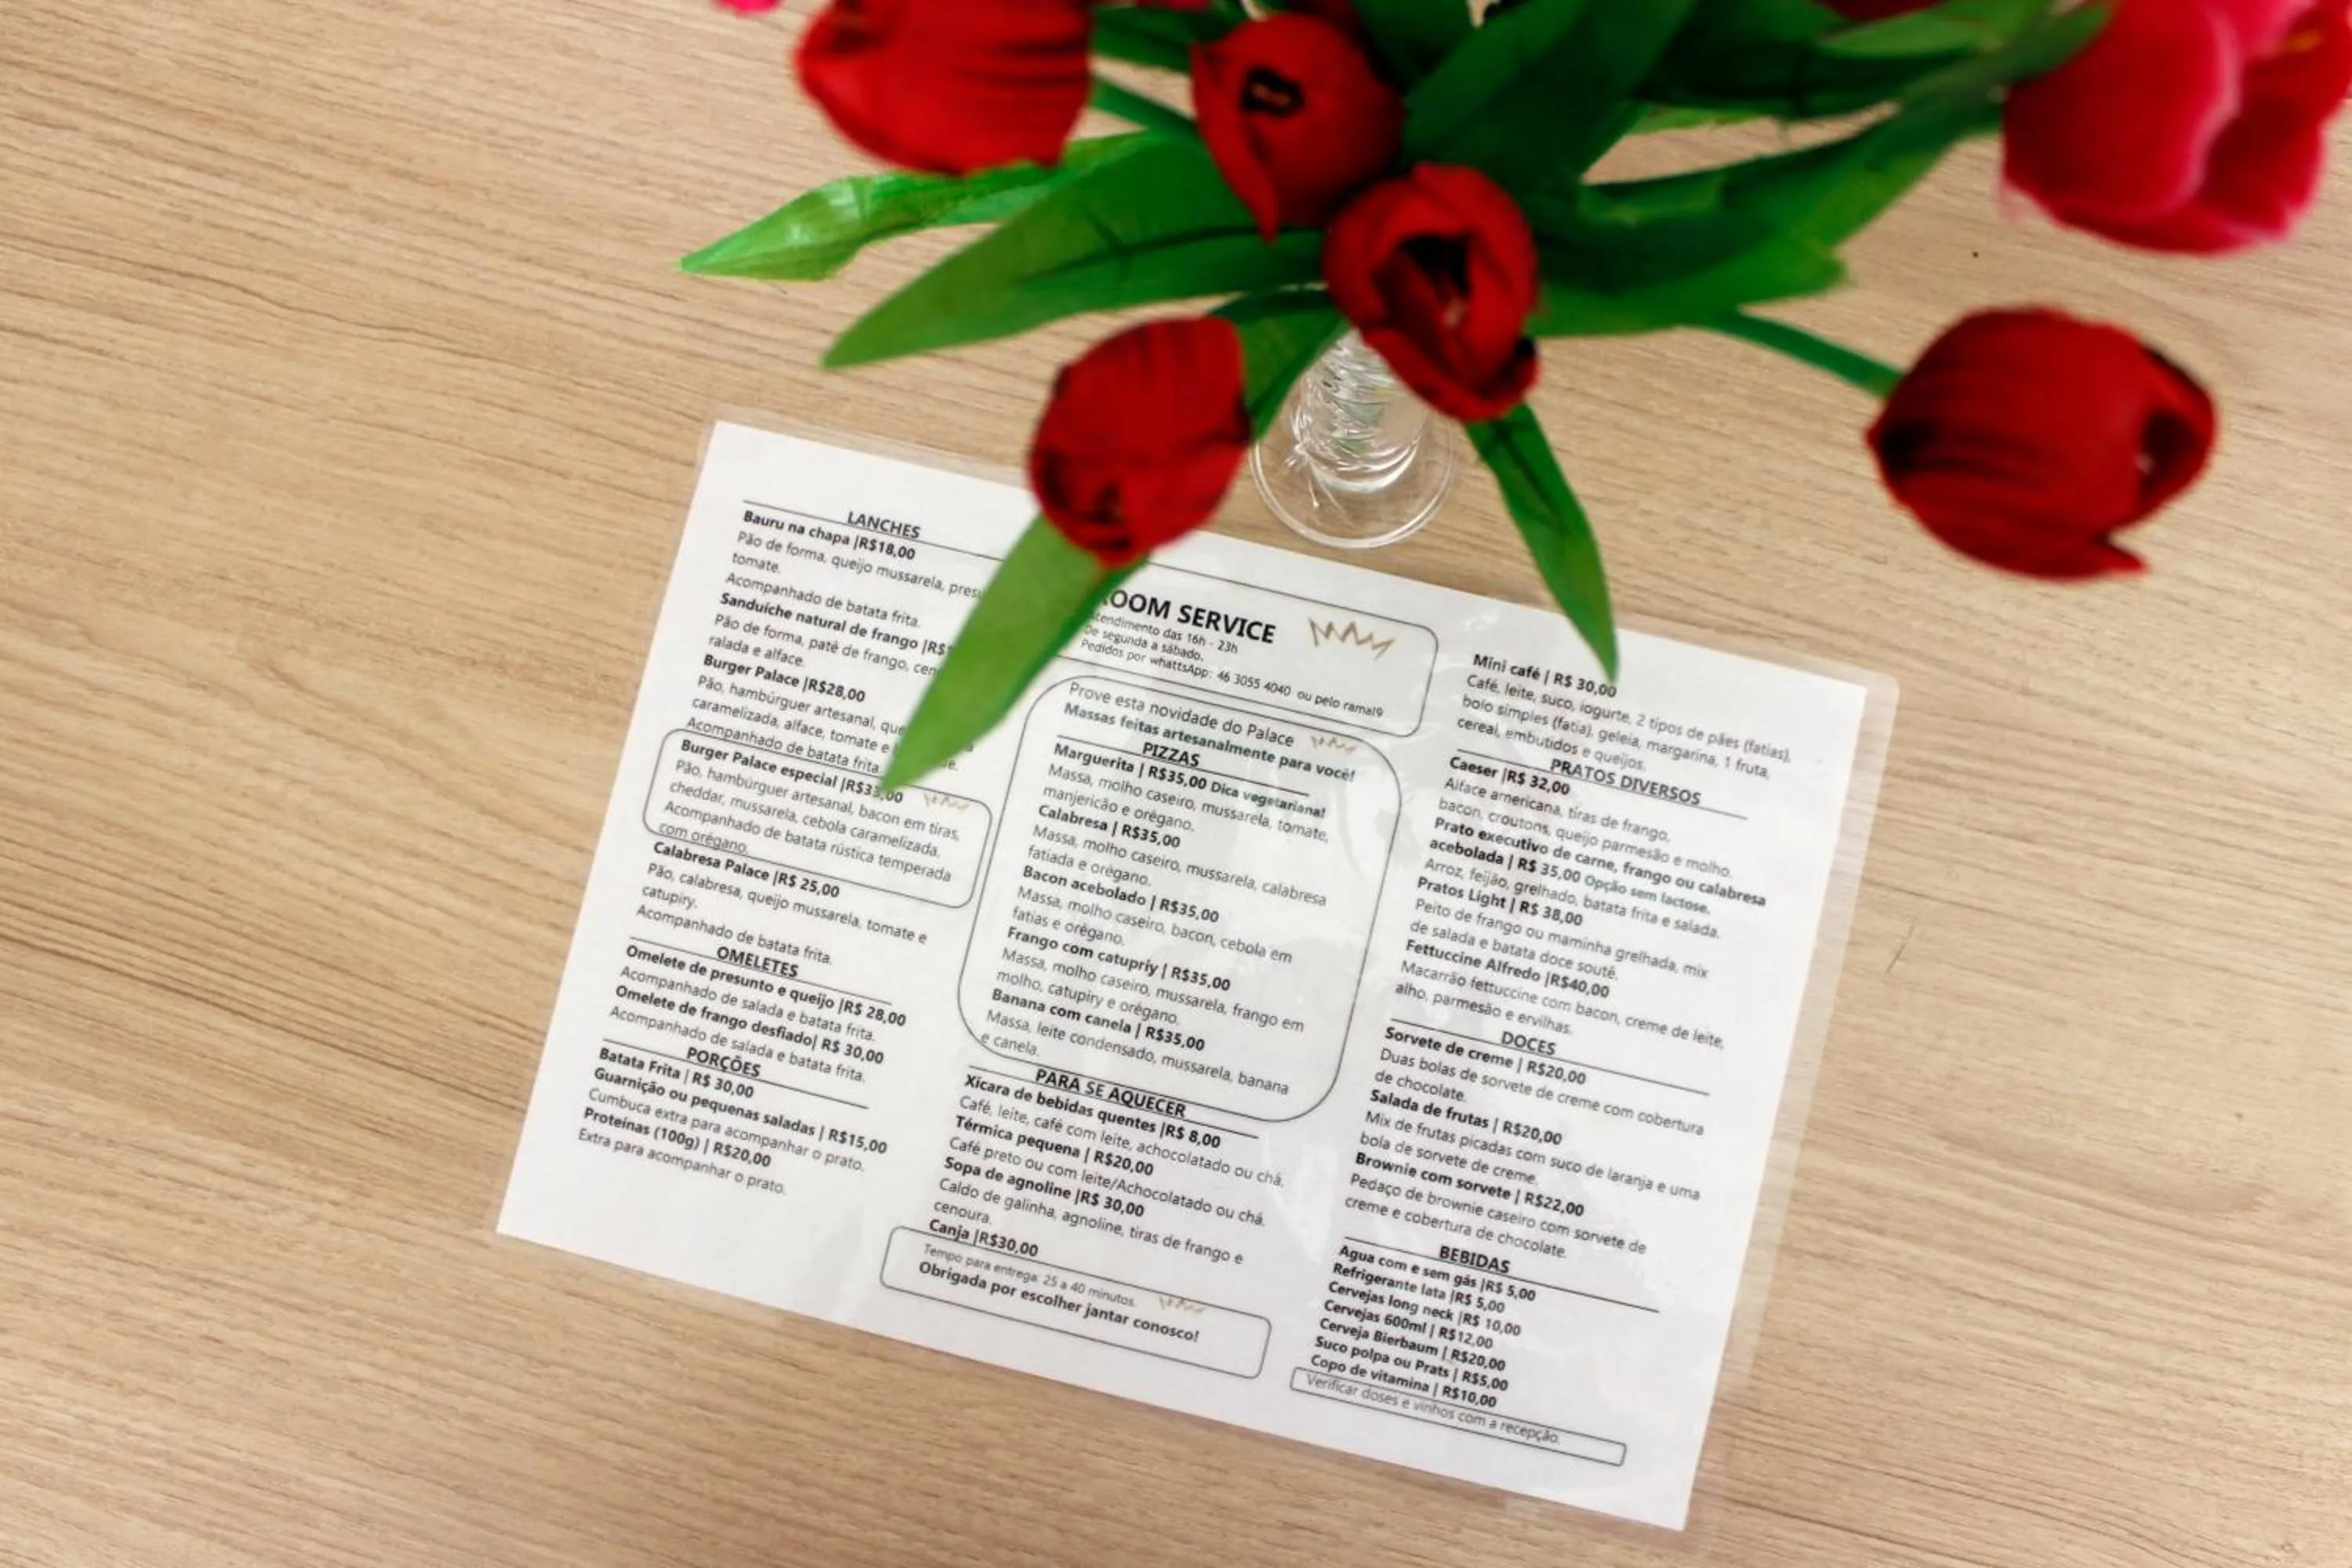 LANCHES
Bauru na chapa |R$18,00
Pão de forma, queijo mussarela,
tomate.
Acompanhado de batata frita.
Sanduíche natural de frango
Pão de forma, patê de frango,
ralada e alface.
Burger Palace |R$28,00
Pão, hambúrguer artesanal,
caramelizada, alface, tomate e
Acompanhado de batata frita.
Burger Palace especial
Pão, hambúrguer artesanal, bacon em tiras,
cheddar, mussarela, cebola caramelizada.
Acompanhado de batata rústica temperada
com orégano.
Calabresa Palace |R$ 25,00
Pão, calabresa, queijo mussarela, tomate e
catupiry.
Acompanhado de batata frita.
OMELETES
Omelete de presunto e queijo |R$ 28,00
Acompanhado de salada e batata frita.
Omelete de frango desfiado| R$ 30,00
Acompanhado de salada e batata frita.
PORÇÕES
Batata Frita | R$ 30,00
Guarnição ou pequenas saladas | R$15,00
Cumbuca extra para acompanhar o prato.
Proteínas (100g) | R$20,00
Extra para acompanhar o prato.
ROOM SERVICE
Atendimento das 16h - 23h
De segunda a sábado.
Pedidos por whattsApp: 46 3055 4040 ou pelo ramal9
Prove esta novidade do Palace
Massas feitas artesanalmente para você!
PIZZAS
Marguerita | R$35,00 Dica vegetariana!
Massa, molho caseiro, mussarela, tomate,
manjericão e orégano.
Calabresa | R$35,00
Massa, molho caseiro, mussarela, calabresa
fatiada e orégano.
Bacon acebolado | R$35,00
Massa, molho caseiro, bacon, cebola em
fatias e orégano.
Frango com catupriy | R$35,00
Massa, molho caseiro, mussarela, frango em
molho, catupiry e orégano.
Banana com canela | R$35,00
Massa, leite condensado, mussarela, banana
e canela.
PARA SE AQUECER
Xícara de bebidas quentes |R$ 8,00
Café, leite, café com leite, achocolatado ou chá.
Térmica pequena | R$20,00
Café preto ou com leite/Achocolatado ou chá.
Sopa de agnoline |R$ 30,00
Caldo de galinha, agnoline, tiras de frango e
cenoura.
Canja |R$30,00
Tempo para entrega: 25 a 40 minutos.
Obrigada por escolher jantar conosco!
Mini café | R$ 30,00
Café, leite, suco, iogurte, 2 tipos de pães (fatias),
bolo simples (fatia), geleia, margarina, 1 fruta,
cereal, embutidos e queijos.
PRATOS DIVERSOS
Caeser |R$ 32,00
Alface americana, tiras de frango,
bacon, croutons, queijo parmesão e molho.
Prato executivo de carne, frango ou calabresa
acebolada | R$ 35,00 Opção sem lactose.
Arroz, feijão, grelhado, batata frita e salada.
Pratos Light | R$ 38,00
Peito de frango ou maminha grelhada, mix
de salada e batata doce soutê.
Fettuccine Alfredo |R$40,00
Macarrão fettuccine com bacon, creme de leite,
alho, parmesão e ervilhas.
DOCES
Sorvete de creme | R$20,00
Duas bolas de sorvete de creme com cobertura
de chocolate.
Salada de frutas | R$20,00
Mix de frutas picadas com suco de laranja e uma
bola de sorvete de creme.
Brownie com sorvete | R$22,00
Pedaço de brownie caseiro com sorvete de
creme e cobertura de chocolate.
BEBIDAS
Agua com e sem gás |R$ 5,00
Refrigerante lata |R$ 5,00
Cervejas long neck |R$ 10,00
Cervejas 600ml | R$12,00
Cerveja Bierbaum | R$20,00
Suco polpa ou Prats | R$5,00
Copo de vitamina | R$10,00
Verificar doses e vinhos com a recepção.